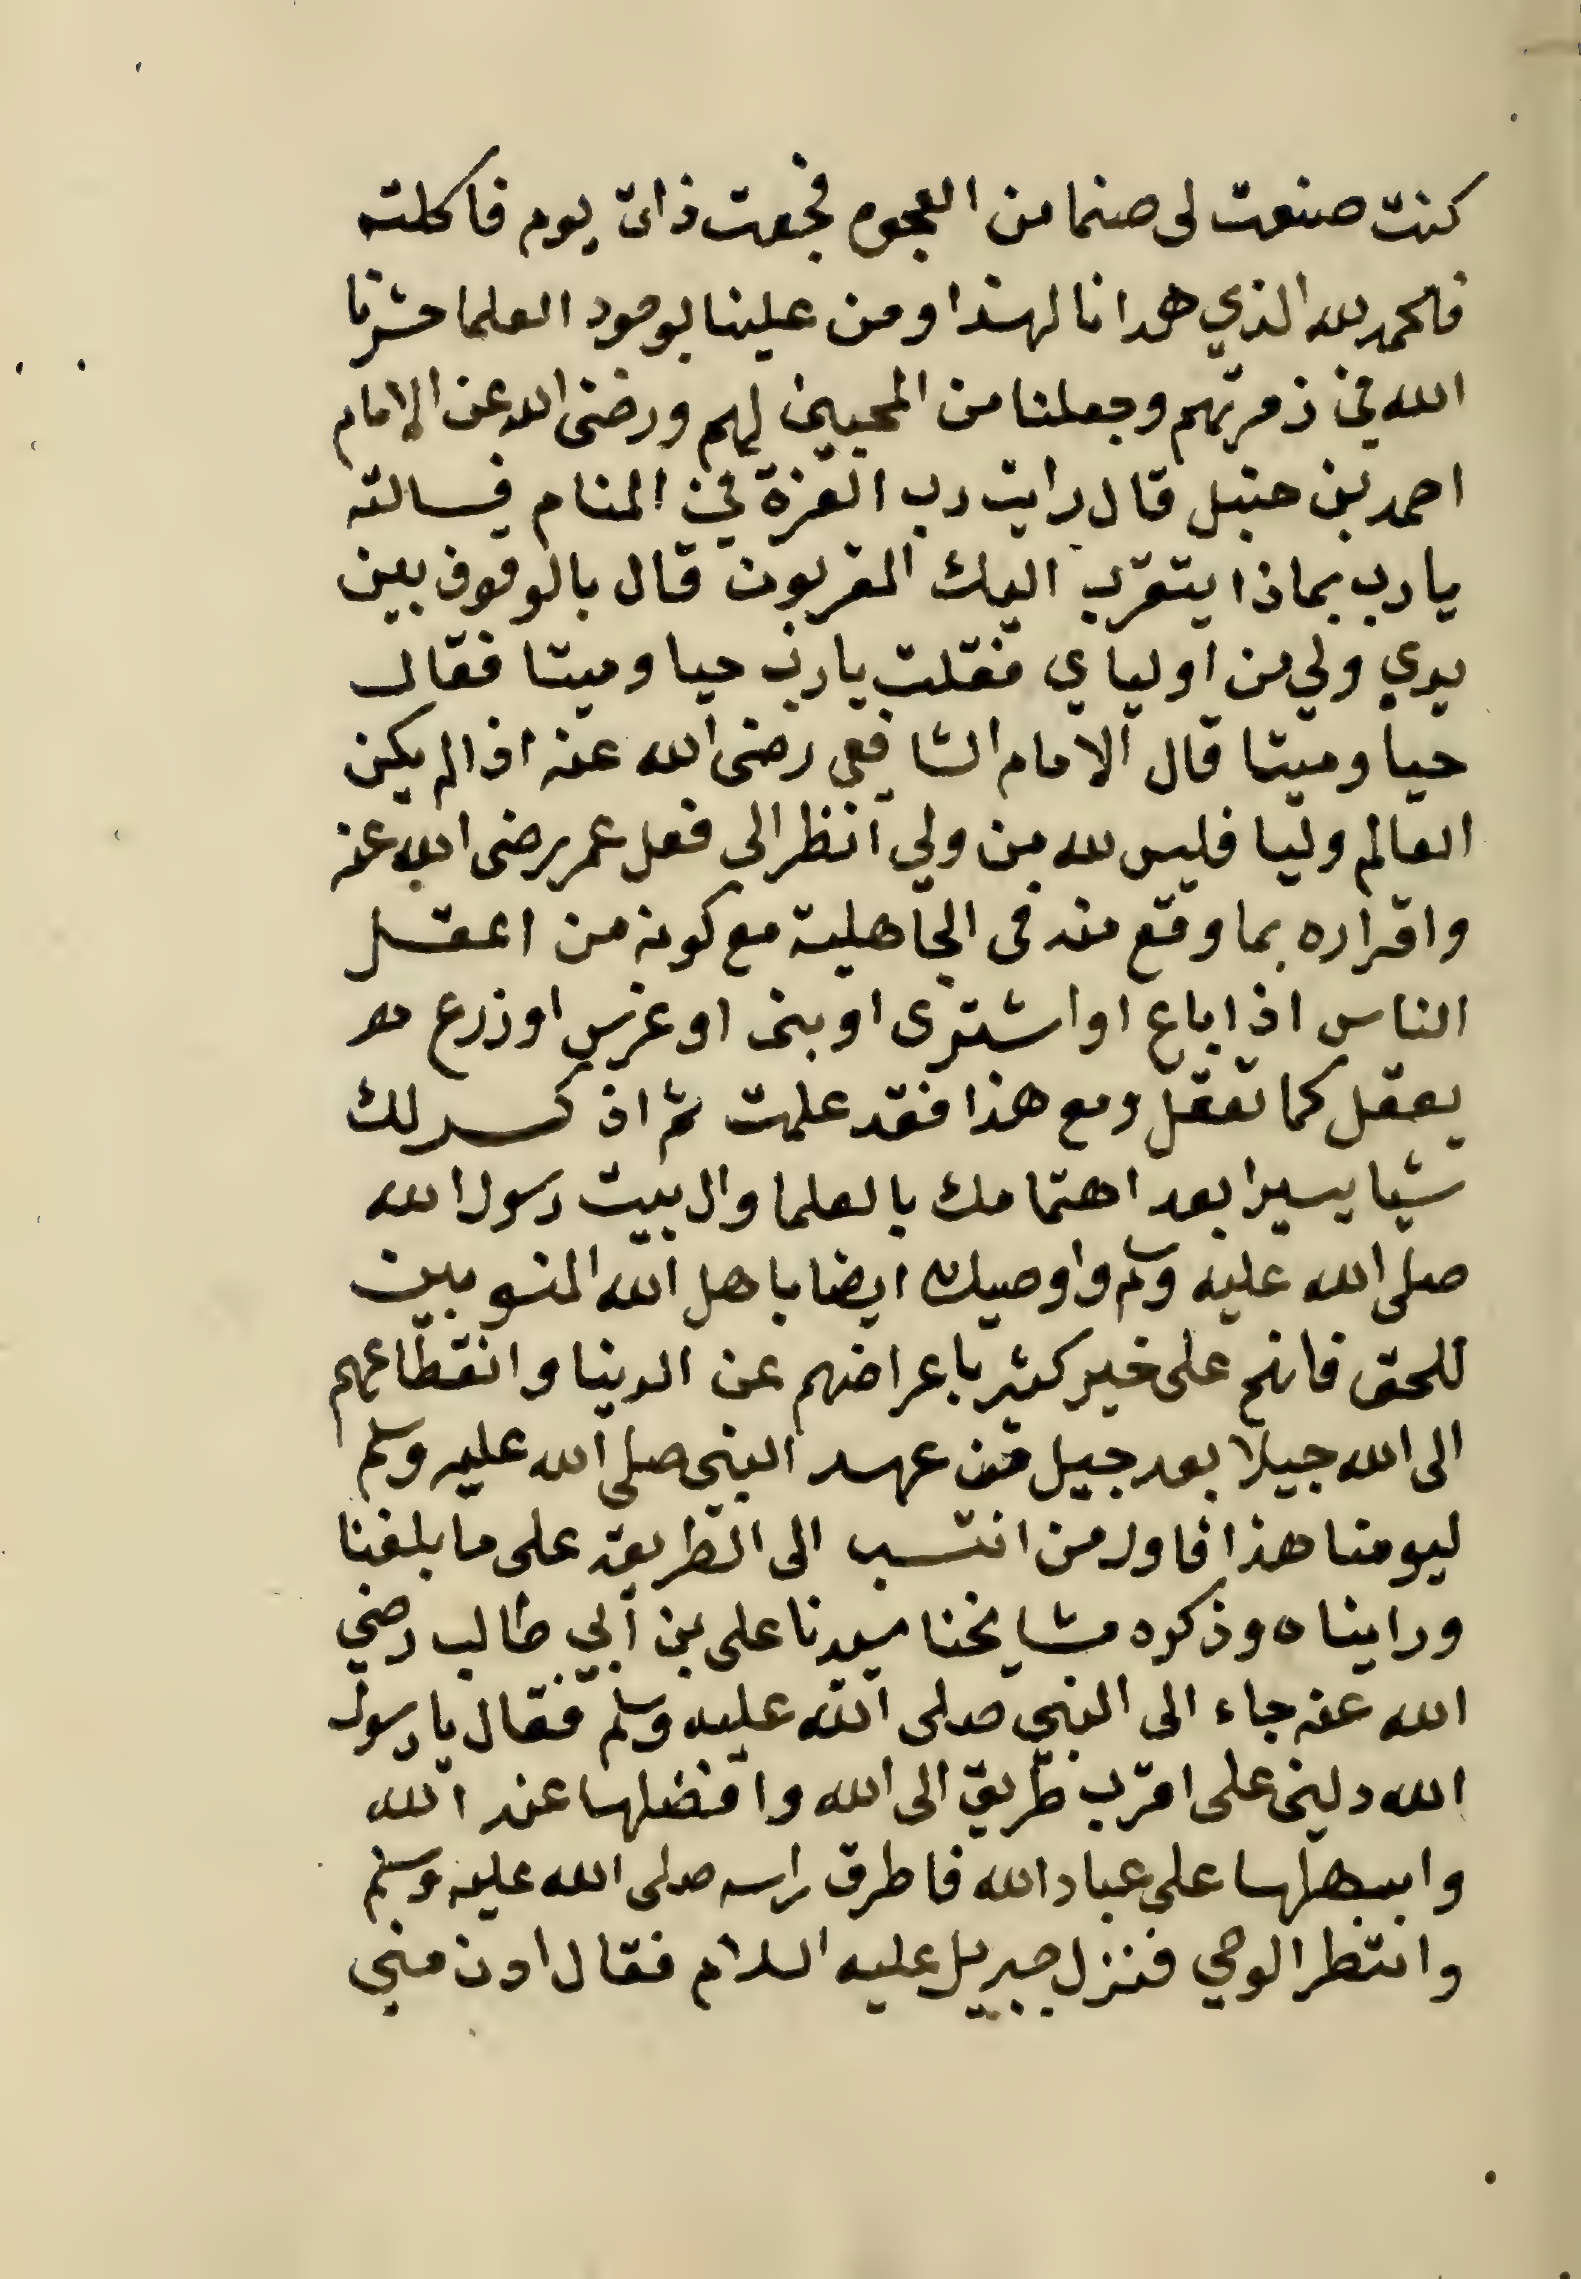 كنت صنعت لى صنما من العجوه فجعت ذات يوم فاكلته
فالحمد لله الذي هدانا لهذا ومن علينا بوجود العلما حشرنا
الله في زمرتهم وجعلنا من المحبين لهم ورضى الله عن الامام
احمد بن حنبل قال رايت رب العزة في المنام فسالته
يا رب بماذا يتقرب اليك المقربون قال بالوقوف بين
يدي ولي من اولياي فقلت يا رب حيا وميتا فقال
حيا وميتا قال الامام الشافعى رضى الله عنه اذا لم يكن
العالم وليا فليس لله من ولي انظر الى فعل عمر رضى الله عنه
واقراره بما وقع منه فى الجاهلية مع كونه من اعقل
الناس اذا باع او اشترى او بنى او غرس او زرع هو
يعقل كما تعقل ومع هذا فقد علمت ثم اذكر لك
شيا يسيرا بعد اهتمامك بالعلما وال بيت رسول الله
صلى الله عليه وسلم واوصيك ايضا باهل الله المنسوبين
للحق فانهم على خير كثير باعراضهم عن الدنيا وانقطاعهم
الى الله جيلا بعد جيل من عهد النبي صلى الله عليه وسلم
ليومنا هذا فاول من انتسب الى الطريقة على ما بلغنا
وراينا ه وذكره مشايخنا سيدنا على بن أبي طالب رضي
الله عنه جاء الى النبي صلى الله عليه وسلم فقال يا رسول
الله دلنى على اقرب طريق الى الله وافضلها عند الله
واسهلها على عباد الله فاطرق راسه صلى الله عليه وسلم
وانتظر الوحي فنزل جبريل عليه السلام فقال ادن مني